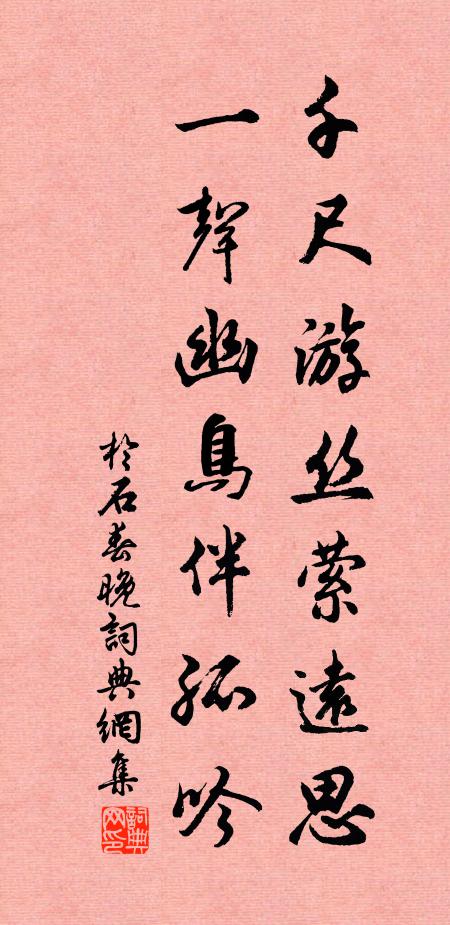 千尺游丝萦遠思
一聲幽鳥伴孤吟
於石春晚詞典網集
詞典网印